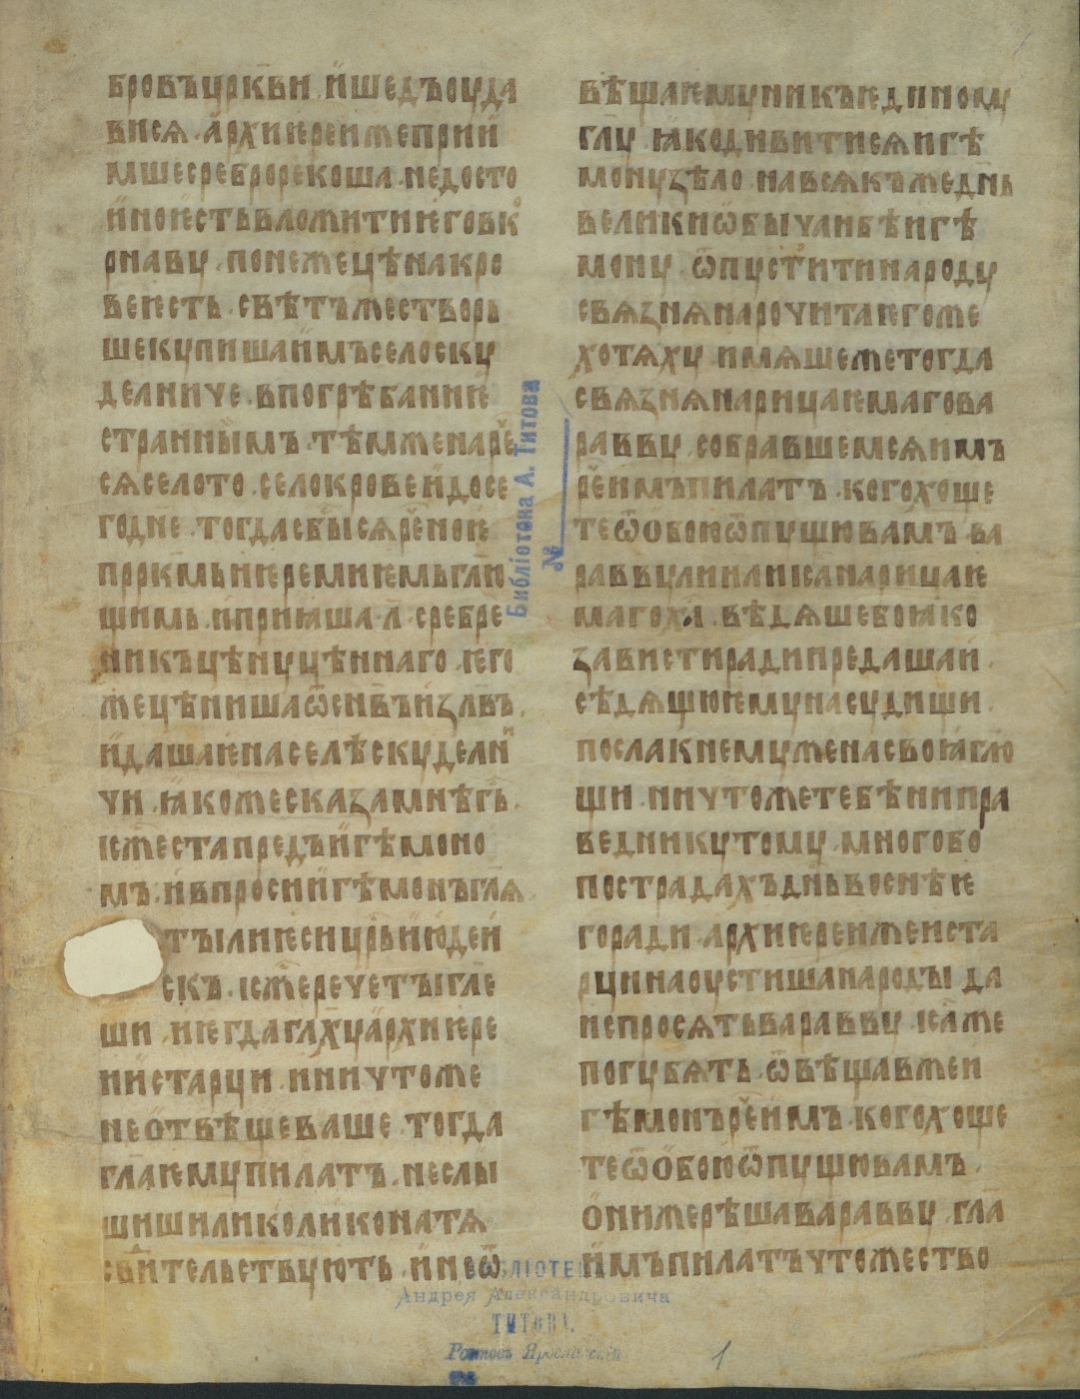 бровъ црк҃ви ӥшедъ оуда
вися· архиѥреиже прии
мше сребро рекоша· недосто
ино ѥсть вложити ѥго вк
рнаву· понеже цѣна кро
ве ѥсть· свѣтъ же створь
ше купиша имъ село ску
делниче· впогрѣбаниѥ
странныимъ· тѣмже наре
ся село то· село крове и досе
го дн҃е· тогда сбыся реноѥ
прркмь иѥремиѥмь гл҃ю
щимь· и приꙗша ·л҃· сребре
никъ цѣну цѣннаго ѥго
же цѣниша ѿ сн҃въ изл҃въ·
и даша ѥ на селѣ скуделн
чи· ꙗкоже сказа мнѣ гь҃·
іс҃же ста предъ игѣмоно
мъ· и впроси и игѣмонъ гл҃я
ты ли ѥси цр҃ь июдеи
скъ· іс҃же рече ты гл҃е
ши· и ѥгда гл҃ху архиѥре
и и старци· ничтоже
не отвѣщеваше· тогда
гл҃а ѥму пилатъ· не слы
шиши ли колико на тя
свѣтельствують· и не ѿ
вѣща ѥму никъ ѥдиному
гл҃у ꙗко дивитися игѣ
мону зѣло· на всякъ же дн҃ь
великии ѡбычаи бѣ игѣ
мону ѿпустити народу
связня нарочита ѥгоже
хотяху имяше же тогда
связня нарицаѥмаго ва
равву· собравшемся имъ
реч имъ пилатъ· кого хоще
те ѿ обою ѿпущю вамъ ва
равву ли или іса нарицаѥ
маго ха҃· вѣдяше бо ꙗко
зависти ради предаша и·
сѣдящю ѥму на судищи·
посла к нему жена своꙗ гл҃ю
щи· ничтоже тебѣ и пра
веднику тому· много бо
пострадахъ дн҃ь во снѣ ѥ
го ради· архиѥреиже и ста
рци наоустиша народы да
испросять варавву іс҃аже
погубять· ѿвѣщавже и
гѣмонъ реч имъ· кого хоще
те ѿ обою ѿпущю вамъ·
они же рѣша варавву· гл҃а
имъ пилатъ что же ство
Библіотека А. Титова
№
БИБЛІОТЕКА
Андрея Александровича
ТИТОВА.
Ростовъ Ярославскій
1